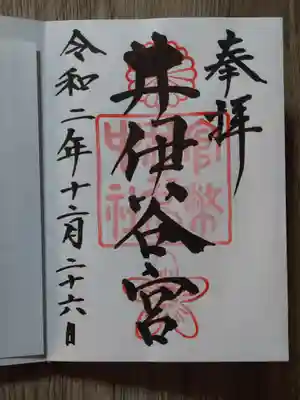 奉拝
井伊谷宮
官幣中社
令和二年十二月二十六日